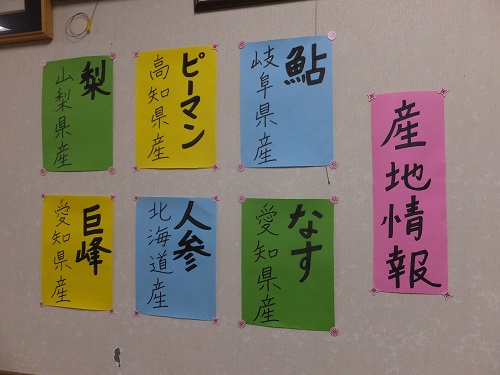 産地情報
鮎
岐阜県産
ピーマン
高知県産
梨
山梨県産
なす
愛知県産
人参
北海道産
巨峰
愛知県産